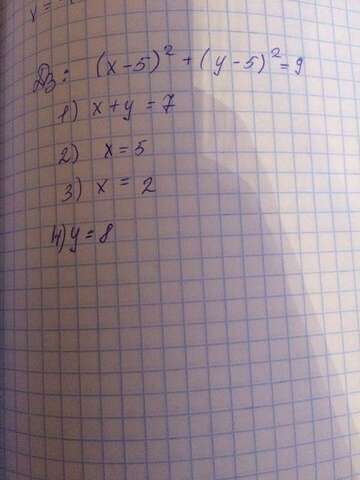 ДЗ: (x-5)² + (y-5)² = 9
1) x+y = 7
2) x = 5
3) x = 2
4) y = 8